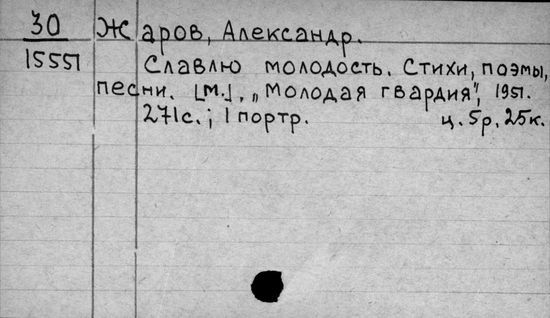 30 Жаров, Александр.
15551 Славлю молодость. Стихи, поэмы,
песни. [М.], „Молодая гвардия", 1951.
271с.; 1 портр. ц. 5р. 25к.